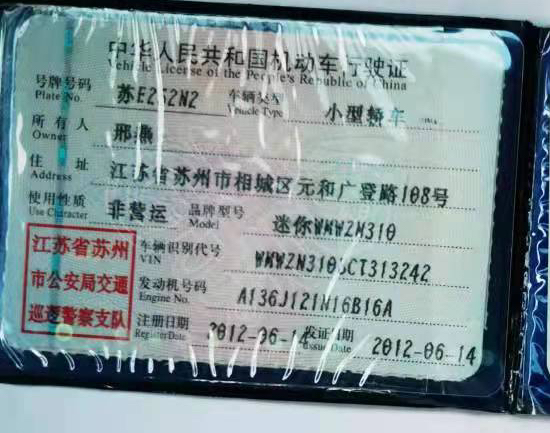 中华人民共和国机动车行驶证
Vehicle License of the People's Republic of China
号牌号码 苏E252N2 车辆类型 小型轿车
Plate No. Vehicle Type
所有人 邢燕
Owner
住址 江苏省苏州市相城区元和广登路108号
Address
使用性质 非营运 品牌型号 迷你WMWZM310
Use Character Model
江苏省苏州
市公安局交通
巡逻警察支队
车辆识别代号 WMWZN310SCT313242
VIN
发动机号码 A136J121N16B16A
Engine No.
注册日期 2012-06-14 发证日期 2012-06-14
Register Date Issue Date